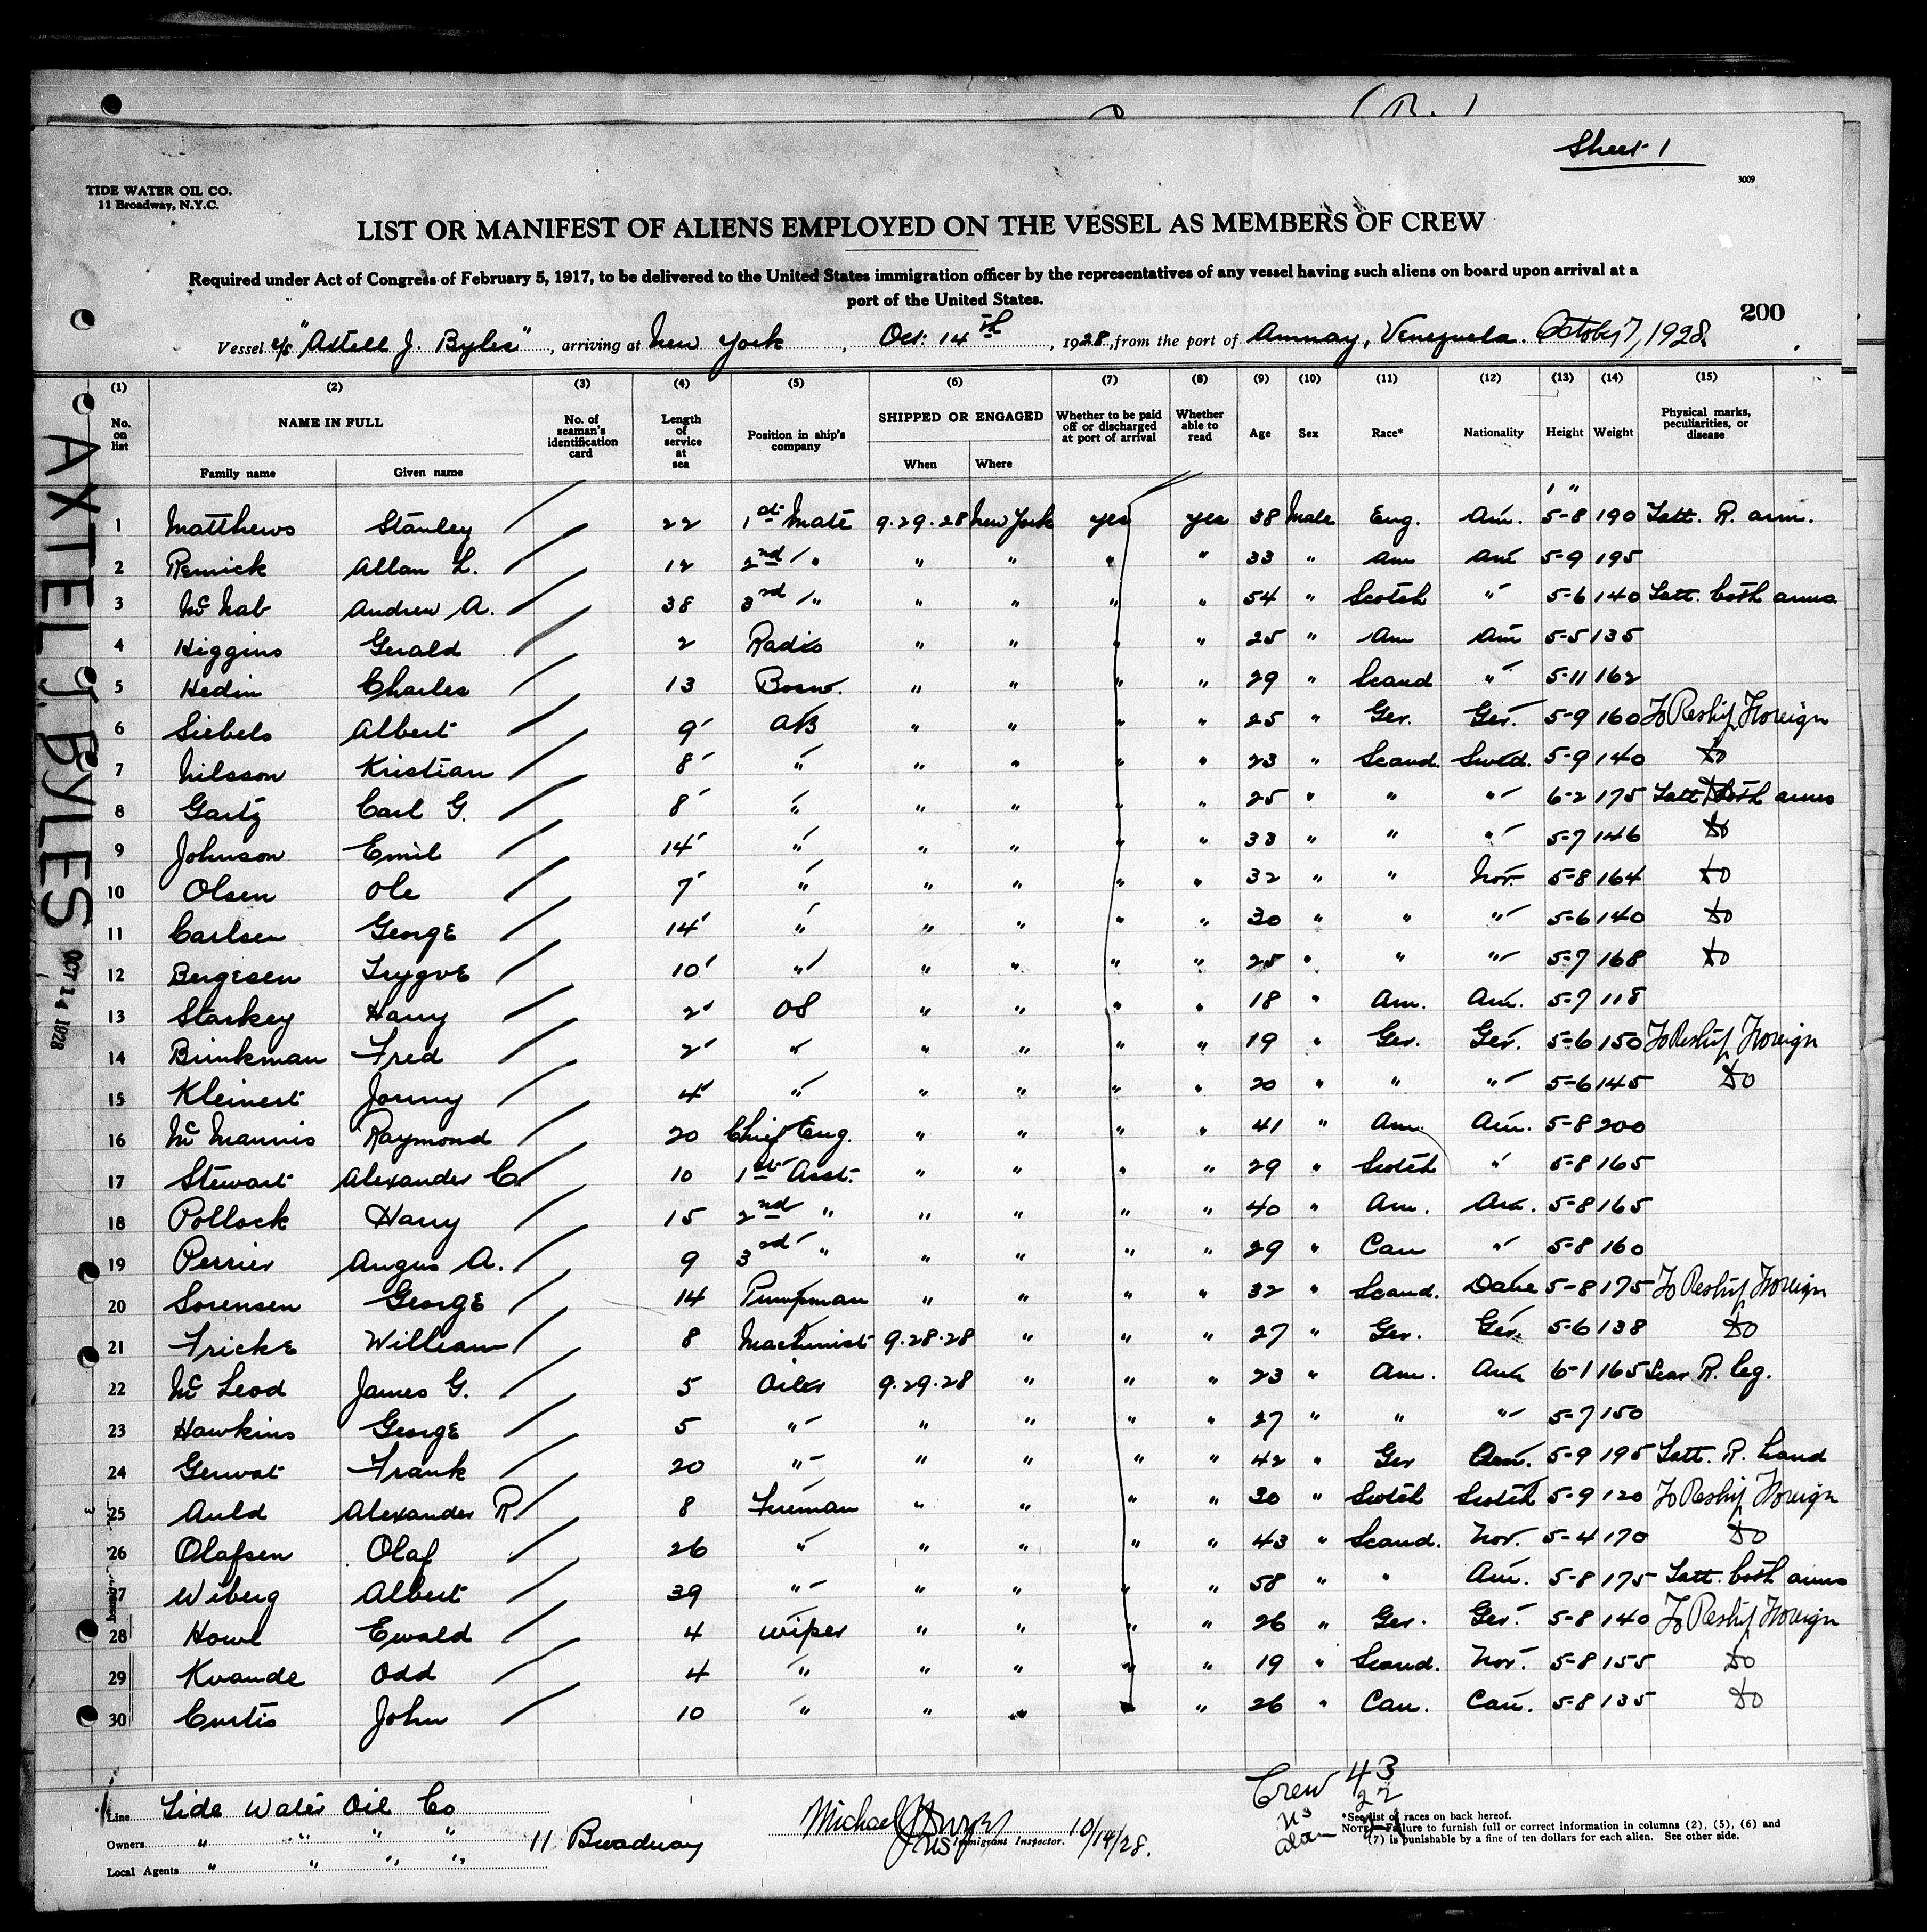 Sheet 1
3009
TIDE WATER OIL CO.
11 Broadway, N.Y.C.
LIST OR MANIFEST OF ALIENS EMPLOYED ON THE VESSEL AS MEMBERS OF CREW
Required under Act of Congress of February 5, 1917, to be delivered to the United States immigration officer by the representatives of any vessel having such aliens on board upon arrival at a
port of the United States.
200
Vessel "Axtell J. Byles", arriving at New York, Oct. 14th, 1928, from the port of Amuay, Venezuela. October 7, 1928.
(1) (2) (3) (4) (5) (6) (7) (8) (9) (10) (11) (12) (13) (14) (15)
No. on list NAME IN FULL Family name Given name No. of seaman's identification card Length of service at sea Position in ship's company SHIPPED OR ENGAGED When Where Whether to be paid off or discharged at port of arrival Whether able to read Age Sex Race* Nationality Height Weight Physical marks, peculiarities, or disease
1 Matthews Stanley 22 1st Mate 9.29.28 New York yes yes 38 Male Eng. Am. 5-8 190 Tatt. R. arm.
2 Remick Allan L. 12 2nd " " " " " 33 " Am Am 5-9 195
3 McNab Andrew A. 38 3rd " " " " " 54 " Scotch " 5-6 140 Tatt. both arms
4 Higgins Gerald 2 Radio " " " " 25 " Am Am 5-5 135
5 Hedin Charles 13 Bosw. " " " " 29 " Scand " 5-11 162
6 Siebels Albert 9 AB " " " " 25 " Ger. Ger. 5-9 160 To Reship Foreign
7 Nilsson Kristian 8 " " " " " 23 " Scand. Swed. 5-9 140 Do
8 Gartz Carl G. 8 " " " " " 25 " " " 6-2 175 Tatt. both arms
9 Johnson Emil 14 " " " " " 33 " " " 5-7 146 Do
10 Olsen Ole 7 " " " " " 32 " " Nor. 5-8 164 Do
11 Carlsen George 14 " " " " " 30 " " " 5-6 140 Do
12 Bergesen Trygve 10 " " " " " 25 " " " 5-7 168 Do
13 Starkey Harry 2 OS " " " " 18 " Am. Am. 5-7 118
14 Brinkman Fred 2 " " " " " 19 " Ger. Ger. 5-6 150 To Reship Foreign
15 Kleinert Jonny 4 " " " " " 20 " " " 5-6 145 Do
16 McMannis Raymond 20 Chief Eng. " " " " 41 " Am. Am. 5-8 200
17 Stewart Alexander C. 10 1st Asst. " " " " 29 " Scotch " 5-8 165
18 Pollock Harry 15 2nd " " " " " 40 " Am. Am. 5-8 165
19 Perrier Angus A. 9 3rd " " " " " 29 " Can " 5-8 160
20 Sorensen George 14 Pumpman " " " " 32 " Scand. Dane 5-8 175 To Reship Foreign
21 Fricke William 8 Machinist 9.28.28 " " " 27 " Ger. Ger. 5-6 138 Do
22 McLeod James G. 5 Oiler 9.29.28 " " " 23 " Am. Am 6-1 165 Scar R. leg.
23 Hawkins George 5 " " " " " 27 " " " 5-7 150
24 Gerwat Frank 20 " " " " " 42 " Ger Am. 5-9 195 Tatt. R. hand
25 Auld Alexander R 8 Fireman " " " " 30 " Scotch Scotch 5-9 120 To Reship Foreign
26 Olafsen Olaf 26 " " " " " 43 " Scand. Nor. 5-4 170 Do
27 Wiberg Albert 39 " " " " " 58 " " Am. 5-8 175 Tatt. both arms
28 Howe Ewald 4 Wiper " " " " 26 " Ger. Ger. 5-8 140 To Reship Foreign
29 Kvande Odd 4 " " " " " 19 " Scand. Nor. 5-8 155 Do
30 Curtis John 10 " " " " " 26 " Can. Can. 5-8 135 Do
AXTEL J. BYLES
OCT 14 1928
Line Tide Water Oil Co
Owners " " " " 11 Broadway
Local Agents " " " "
Michael
Immigrant Inspector. 10/14/28.
Crew 43
US 22
alien 21
*See list of races on back hereof.
NOTE.—Failure to furnish full or correct information in columns (2), (5), (6) and
(7) is punishable by a fine of ten dollars for each alien. See other side.